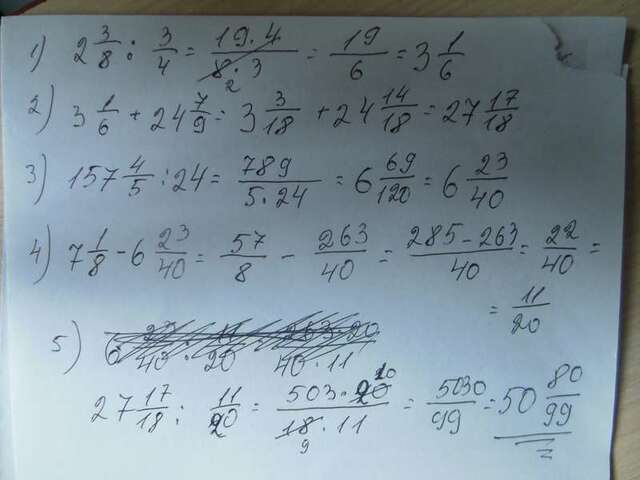 1) 2 3/8 : 3/4 = 19·4/8·3 2 = 19/6 = 3 1/6
2) 3 1/6 + 24 7/9 = 3 3/18 + 24 14/18 = 27 17/18
3) 157 4/5 : 24 = 789/5·24 = 6 69/120 = 6 23/40
4) 7 1/8 - 6 23/40 = 57/8 - 263/40 = 285-263/40 = 22/40 =
= 11/20
5)
27 17/18 : 11/20 = 503·20 10/18·11 9 = 5030/99 = 50 80/99